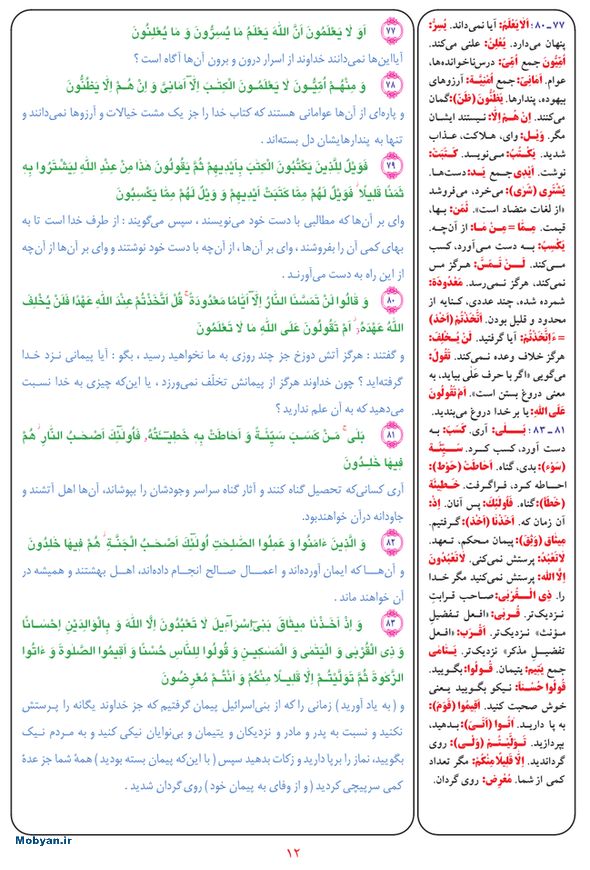 ۷۷ـ۸۰: اَلایَعْلَمُ: آیا نمی‌داند. یُسِرُّ:
پنهان می‌دارد. یُعْلِنُ: علنی می‌کند.
اُمِّیّونَ جمع اُمّی: درس‌ناخوانده‌ها،
عوام. اَمانِیّ: جمع اُمْنِیَّة: آرزوهای
بیهوده، پندارها. یَظُنُّونَ (ظَنَّ): گمان
می‌کنند. اِن هُمْ اِلّا: نیستند ایشان
مگر. وَیْل: وای، هلاکت، عذاب
شدید. یَکْتُبُ: می‌نویسد. کَتَبَتْ:
نوشت. اَیْدِی جمع یَد: دست‌ها.
یَشْتَرِی (شَری): می‌خرد، می‌فروشد
«از لغات متضاد است». ثَمَن: بها،
قیمت. مِمَّا = مِنْ مَا: از آن‌چه.
یَکْسِبُ: به دست می‌آورد، کسب
می‌کند. لَنْ تَمَسَّ: هرگز مس
نمی‌کند، هرگز نمی‌رسد. مَعْدُودَة:
شمرده شده، چند عددی، کنایه از
محدود و قلیل بودن. اَتَّخَذْتُمْ (اَخَذَ)
= ءَاِتَّخَذْتُمْ: آیا گرفتید. لَنْ یُخْلِفَ:
هرگز خلاف وعده نمی‌کند. تَقُولُ:
می‌گویی «اگر با حرف عَلَی بیاید، به
معنی دروغ بستن است». اَمْ تَقُولُونَ
عَلَی اللّهِ: یا بر خدا دروغ می‌بندید.
۸۱ـ۸۳: بَلَی: آری. کَسَبَ: به
دست آورد، کسب کرد. سَیِّئَة
(سَوَءَ): بدی، گناه. اَحاطَتْ (حَوَطَ):
احاطه کرد، فراگرفت. خَطیئَة
(خَطَأ): گناه. فَاُولئِکَ: پس آنان. اِذْ:
آن زمان که. اَخَذْنَا (اَخَذَ): گرفتیم.
میثاق (وَثِقَ): پیمان محکم، تعهد.
لَاتَعْبُدُ: پرستش نمی‌کنی. لَاتَعْبُدُونَ
اِلَّا اللّهَ: پرستش نمی‌کنید مگر خدا
را. ذِی الْقُرْبَی: صاحب قرابتِ
نزدیک‌تر. قُرْبَی: «افعل تفضیلِ
مؤنث» نزدیک‌تر. اَقْرَب: «افعل
تفضیلِ مذکر» نزدیک‌تر. یَتَامَی
جمع یَتیم: یتیمان. قُولُوا: بگویید.
قُولُوا حُسْناً: نیکو بگویید یعنی
خوش صحبت کنید. اَقیمُوا (قَوَمَ):
به پا دارید. آتُوا (اَتَیَ): بدهید،
بپردازید. تَوَلَّیْتُمْ (وَلَی): روی
گرداندید. اِلّا قَلیلاً مِنْکُمْ: مگر تعداد
کمی از شما. مُعْرِض: روی گردان.
۷۷ اَوَ لَا یَعْلَمُونَ اَنَّ اللّهَ یَعْلَمُ مَا یُسِرُّونَ وَ مَا یُعْلِنُونَ
آیااین‌ها نمی‌دانند خداوند از اسرار درون و برون آن‌ها آگاه است ؟
۷۸ وَ مِنْهُمْ اُمِّیُّونَ لَا یَعْلَمُونَ الْکِتٰبَ اِلَّآ اَمَانِیَّ وَ اِنْ هُمْ اِلَّا یَظُنُّونَ
و پاره‌ای از آن‌ها عوامانی هستند که کتاب خدا را جز یک مشت خیالات و آرزوها نمی‌دانند و
تنها به پندارهایشان دل بسته‌اند .
۷۹ فَوَیْلٌ لِلَّذِینَ یَکْتُبُونَ الْکِتٰبَ بِاَیْدِیهِمْ ثُمَّ یَقُولُونَ هٰذَا مِنْ عِنْدِ اللّهِ لِیَشْتَرُوا بِهِ
ثَمَنًا قَلِیلًا فَوَیْلٌ لَهُمْ مِمَّا کَتَبَتْ اَیْدِیهِمْ وَ وَیْلٌ لَهُمْ مِمَّا یَکْسِبُونَ
وای بر آن‌ها که مطالبی با دست خود می‌نویسند ، سپس می‌گویند : از طرف خدا است تا به
بهای کمی آن را بفروشند ، وای بر آن‌ها ، از آن‌چه با دست خود نوشتند و وای بر آن‌ها از آن‌چه
از این راه به دست می‌آورند .
۸۰ وَ قَالُوا لَنْ تَمَسَّنَا النَّارُ اِلَّآ اَیَّامًا مَعْدُودَةً قُلْ اَتَّخَذْتُمْ عِنْدَ اللّهِ عَهْدًا فَلَنْ یُخْلِفَ
اللّهُ عَهْدَهُ اَمْ تَقُولُونَ عَلَی اللّهِ مَا لَا تَعْلَمُونَ
و گفتند : هرگز آتش دوزخ جز چند روزی به ما نخواهید رسید ، بگو : آیا پیمانی نزد خدا
گرفته‌اید ؟ چون خداوند هرگز از پیمانش تخلّف نمی‌ورزد ، یا این‌که چیزی به خدا نسبت
می‌دهید که به آن علم ندارید ؟
۸۱ بَلٰی مَنْ کَسَبَ سَیِّئَةً وَ اَحَاطَتْ بِهِ خَطِیٓئَتُهُ فَاُولٰٓئِکَ اَصْحٰبُ النَّارِ هُمْ
فِیهَا خٰلِدُونَ
آری کسانی‌که تحصیل گناه کنند و آثار گناه سراسر وجودشان را بپوشاند، آن‌ها اهل آتشند و
جاودانه درآن خواهندبود.
۸۲ وَ الَّذِینَ ءَامَنُوا وَ عَمِلُوا الصّٰلِحٰتِ اُولٰٓئِکَ اَصْحٰبُ الْجَنَّةِ هُمْ فِیهَا خٰلِدُونَ
و آن‌ها که ایمان آورده‌اند و اعمال صالح انجام داده‌اند، اهل بهشتند و همیشه در
آن خواهند ماند .
۸۳ وَ اِذْ اَخَذْنَا مِیثَاقَ بَنِیٓ اِسْرَآءِیلَ لَا تَعْبُدُونَ اِلَّا اللّهَ وَ بِالْوَالِدَیْنِ اِحْسَانًا
وَ ذِی الْقُرْبٰی وَ الْیَتٰمٰی وَ الْمَسٰکِینِ وَ قُولُوا لِلنَّاسِ حُسْنًا وَ اَقِیمُوا الصَّلٰوةَ وَ ءَاتُوا
الزَّکٰوةَ ثُمَّ تَوَلَّیْتُمْ اِلَّا قَلِیلًا مِنْکُمْ وَ اَنْتُمْ مُعْرِضُونَ
و ( به یاد آورید ) زمانی را که از بنی‌اسرائیل پیمان گرفتیم که جز خداوند یگانه را پرستش
نکنید و نسبت به پدر و مادر و نزدیکان و یتیمان و بی‌نوایان نیکی کنید و به مردم نیک
بگویید، نماز را برپا دارید و زکات بدهید سپس ( با این‌که پیمان بسته بودید ) همهٔ شما جز عدهٔ
کمی سرپیچی کردید ( و از وفای به پیمان خود ) روی گردان شدید .
۱۲
Mobyan.ir